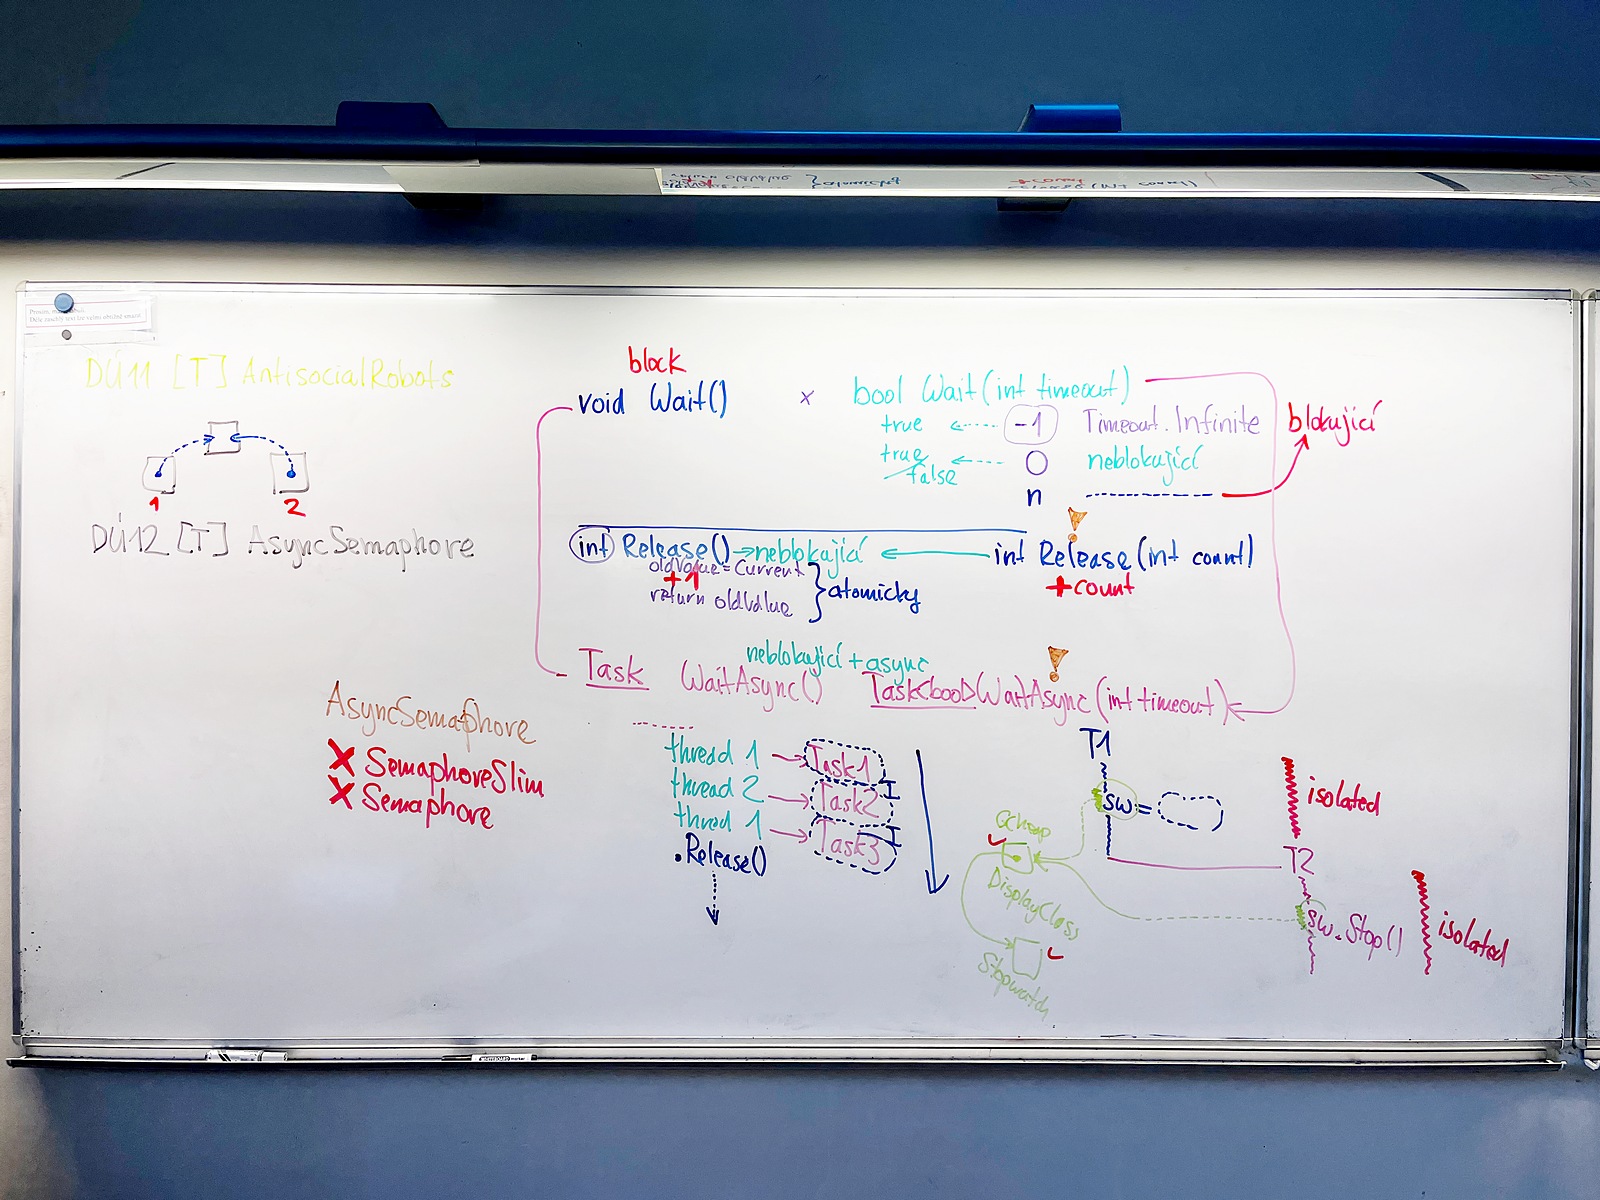 DÚ11 [T] AntisocialRobots
1
2
DÚ12 [T] AsyncSemaphore
block
void Wait() x bool Wait(int timeout)
true -1 Timeout.Infinite
blokující
true/false 0 neblokující
n
int Release() → neblokující
int Release(int count)
oldValue = Current
+1
return oldValue
} atomicky
+count
neblokující + async
Task WaitAsync() Task<bool> WaitAsync(int timeout)
AsyncSemaphore
X SemaphoreSlim
X Semaphore
thread 1 → Task1
thread 2 → Task2
thread 1 → Task3
.Release()
T1
sw =
isolated
GCheap
DisplayClass
Stopwatch
T2
sw.Stop()
isolated